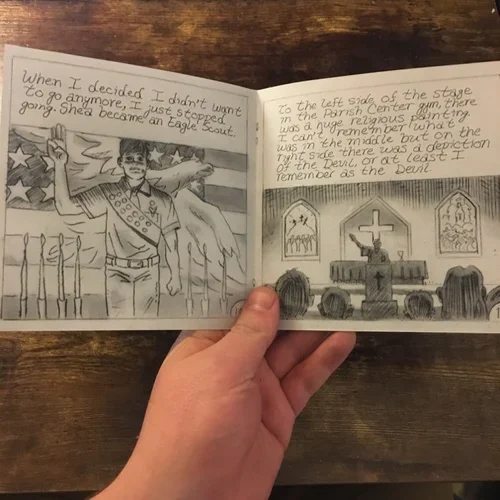 When I decided I didn't want
to go anymore, I just stopped
going. She'd became an Eagle Scout.
To the left side of the stage
in the Parish Center gym, there
was a huge religious painting.
I can't remember what
was in the middle but on the
right side there was a depiction
of the Devil, or at least I
remember as the Devil.